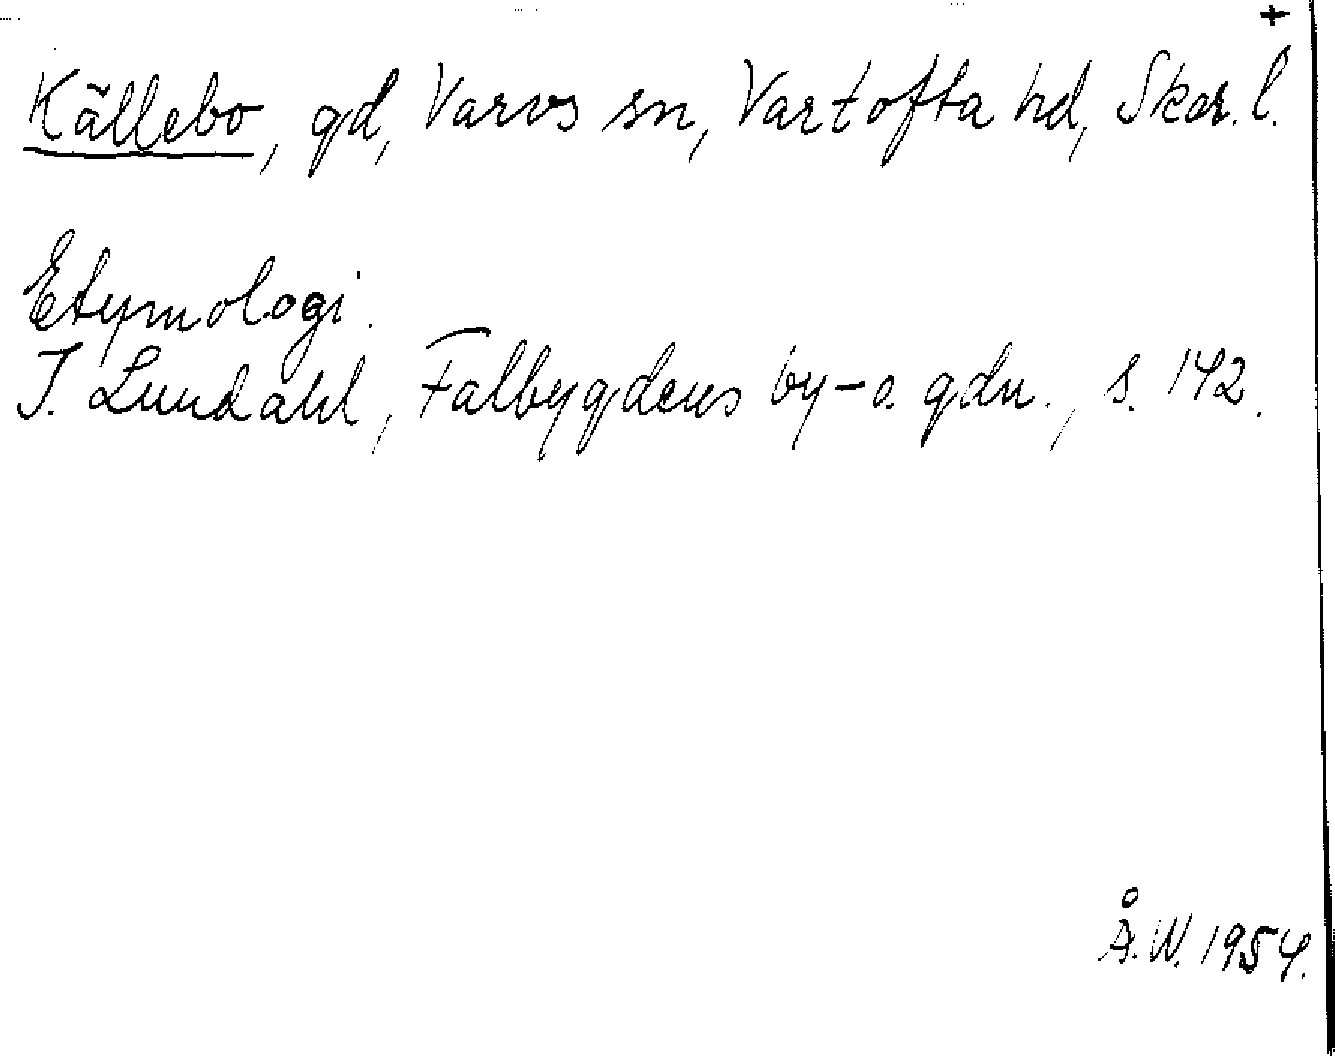 +
Källebo, gd, Varvs sn, Vartofta hd, Skar. l.
Etymologi.
I. Lundahl, Falbygdens by- o. gdn., s. 142.
Å. W. 1954.